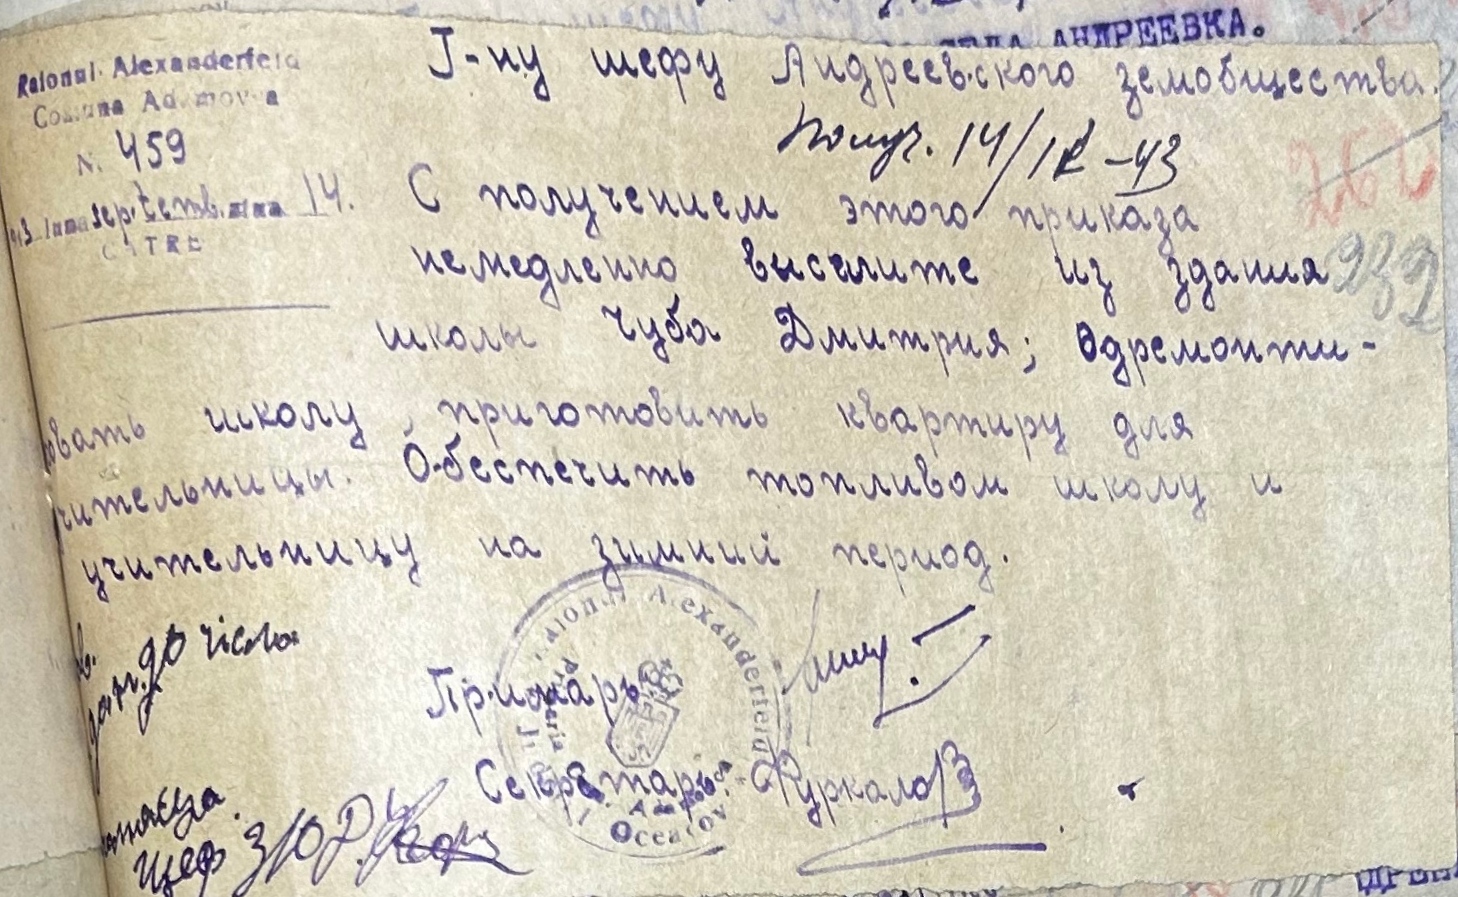 АНДРЕЕВКА.
Raionul Alexanderfeld
Comuna Adamovca
N. 459
Luna septemb. ziua 14.
CĂTRE
Г-ну шефу Андреевского земобщества.
Получ. 14/IX-43
С получением этого приказа
немедленно выселите из здания
школы Чуба Дмитрия; Одремонти-
ровать школу, приготовить квартиру для
учительницы. Обеспечить топливом школу и
учительницу на зимний период.
до числа
Примарь
Секретарь Фуркало
Шеф З/О
Raionul Alexanderfeld
Primăria
Oceacov
262
232